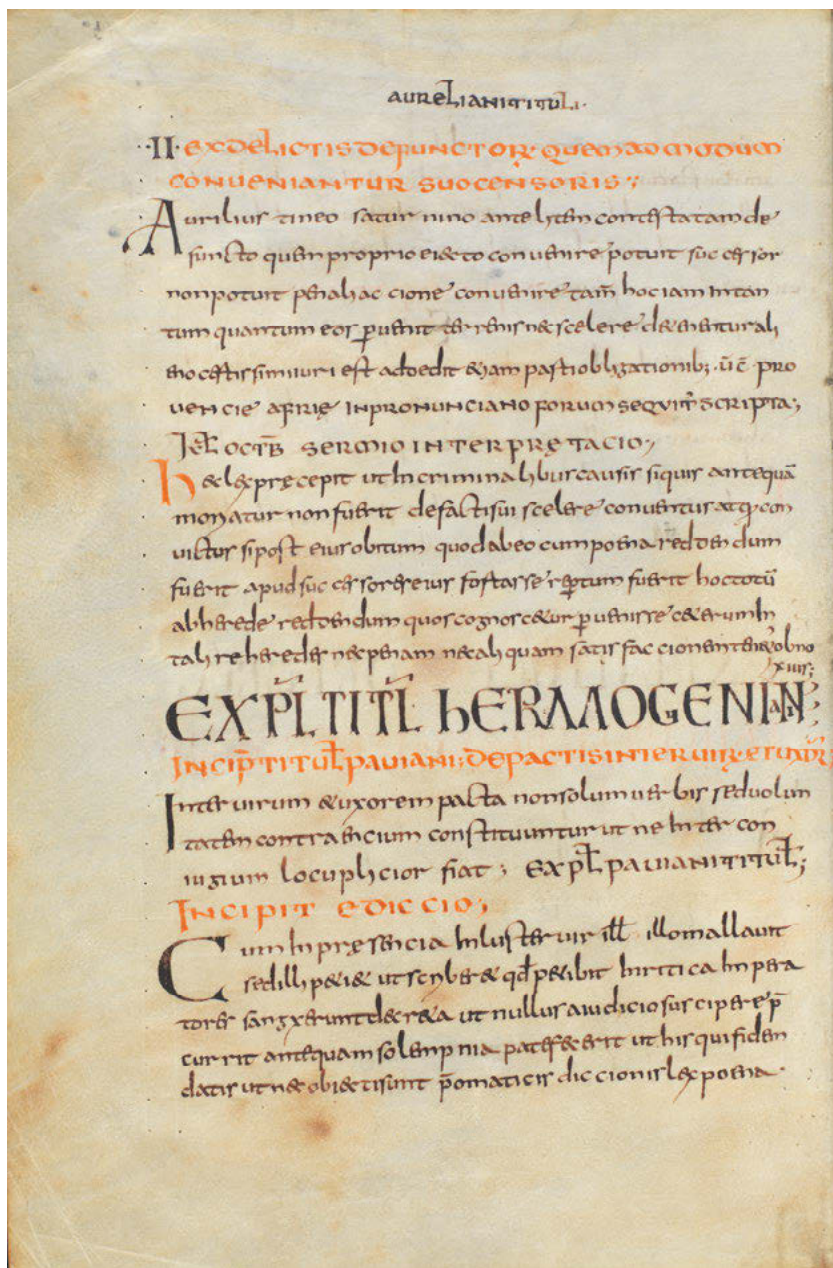 AURELIANI TITULI·
··II· EX DELICTIS DEFUNCTORꝜ QUEMADMODUM
CONVENIANTUR SUOCENSORIS;
Aurilius tineo saturnino ante litem contestatam de
functo quem proprio eiecto convenire potuit successor
non potuit penali accione convenire tam hoc iam intan
tum quantum eos ꝑvenit terrenis nec scelere
est ad oedit etiam pasti obligationib; uc̄ pro
vencie africe in pronunciano forum sequitr scripta;
octb̄ SERMO INTERPRETACIO;
Hec lex pręcepit ut in criminalibus causis siquis antequā
moriatur non fuerit de factis sui scelere conventus atq· con
victus si post eius obitum quod ab eo cum poena reddendum
fuerit apud successores eius fortasse reꝑtum fuerit hoc totū
ab herede reddendum quos cognoscetur ꝑvenisse ceterum in
tali re heredes nec penam nec aliquam satisfaccionem obno
xius;
EXPL TITL hERMOGENIANI;
INCIP̄ TITUL̄ PAVIANI; DE PACTIS INTER VIRꝜ ET UXOR
Inter virum et uxorem pacta non solum verbis sed volun
tatem contraencium constituuntur ut ne inter con
iugium locuplicior fiat; EXPL̄ PAVIANI TITUL̄;
INCIPIT EDICCIO;
Cum in pręsencia inluster vir ill̄ illo mallavit
sed illi petiet ut scriberet qd̄ petibit inritica inpera
tores sangxerunt decreta ut nullus a iudicio suscipere p̄
currit antequam solempnia patefecerit ut his qui fidem
datis ut nec obiectisunt p̄omaticis diccionis lex poena·